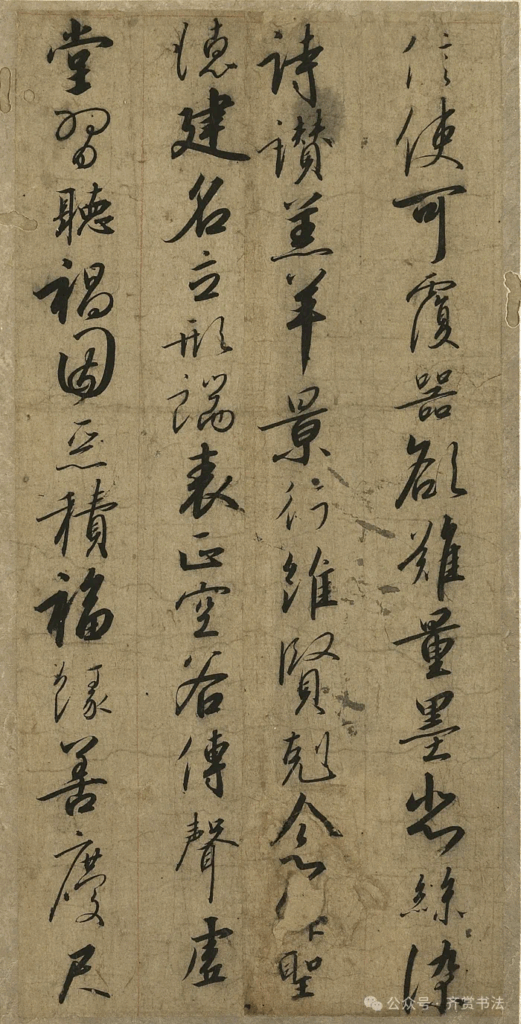 信使可覆器欲難量墨悲絲染
詩讃羔羊景行維賢剋念作聖
徳建名立形端表正空谷傳聲虛
堂習聽禍因惡積福緣善慶尺
公众号·齐赏书法